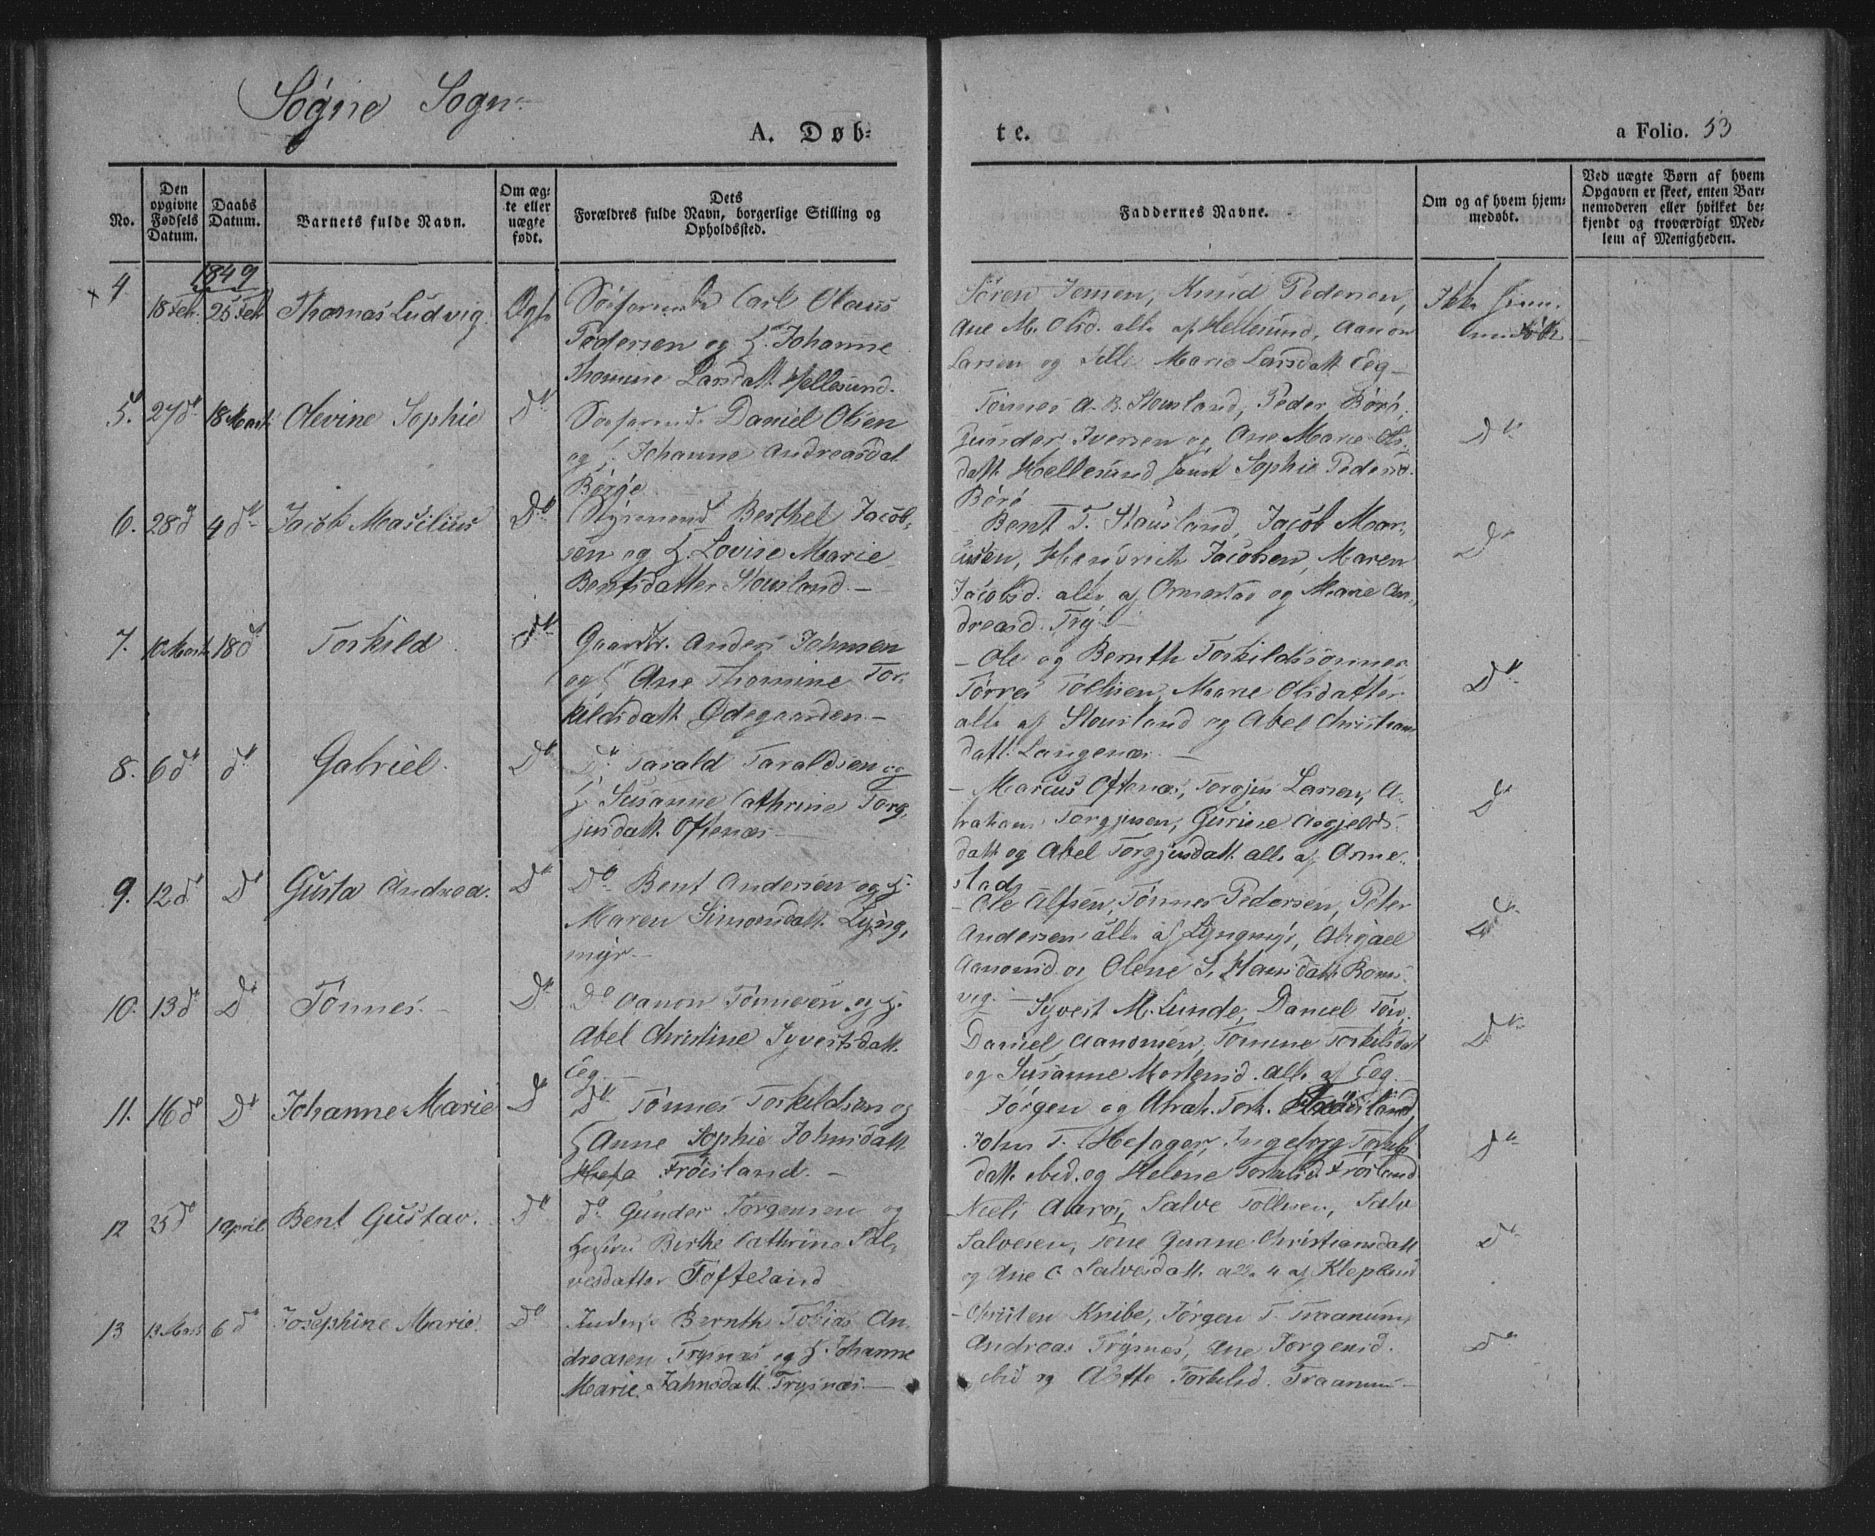 Søgne Sogn
A. Døb-
te.
a Folio. 53
No.
Den opgivne Fødsels Datum.
Daabs Datum.
Barnets fulde Navn.
Om ægte eller uægte født.
Dets
Forældres fulde Navn, borgerlige Stilling og
Opholdssted.
Faddernes Navne.
Om og af hvem hjem-
medøbt.
Ved uægte Børn af hvem
Opgaven er skeet, enten Bar-
nemoderen eller hvilket be-
kjendt og troværdigt Med-
lem af Menigheden.
1849
4
18 Feb. 25 Feb Thomas Ludvig Ægte
Carl Olaus
Pedersen og H. Johanne
Thomine Larsdatt. Hellesund.
Søren Jensen, Knud Pedersen,
Ane M. Olsd. alle af Hellesund, Aanon
Larsen og Marie Larsdatt Eeg
Ikke hjem-
medøbt
5. 27 do 18 Marts Olevine Sophie Do
Daniel Olsen
og H. Johanne Andreasdat
Børøe
Tønnes A. B. Stousland, Peder Børø,
Gunder Iversen og Ane Marie Ols-
datt. Hellesund samt Sophie Pedersd.
Børø
Do
6. 28 do 4 do Jacob Do
Styrmand Berthel Jacob-
sen og H. Lovise Marie
Bentsdatter Stousland.
Bent T. Stousland, Jacob Mar-
cusen, Hendrich Jacobsen, Maren
Jacobsd. alle af Ormestad og Marie An-
dreasd. Try
Do
7. 10 Marts 18 do Torkild Do
Gaardbr. Anders Johnsen
og H. Ane Thomine Tor-
kildsdatt. Ødegaarden
Ole og Bernth Torkildssønner
Tørres Tollisen, Marie Olsdatter
alle af Stousland og Abel Christians-
datt. Langenæs.
Do
8. 6 do do Gabriel. Do
Do Tarald Taraldsen og
H. Susanne Cathrine Torg-
jusdatt. Oftenæs
Marcus Oftenæs, Torgjus Larsen, A-
braham Torgjusen, Gurine
datt og Abel Torgjusdatt. alle af Orme-
stad
Do
9. 12 do Do Gusta Andrea. Do
Do Bent Andersen og H.
Maren Simonsdatt. Lyng-
myr
Ole Alfsen, Tønnes Pedersen, Peter
Andersen alle af Lyngmyr, Abigael
Aanonsd. og Olene S. Hansdatt. Roms-
vig.
Do
10. 13 do Do Tønnes. Do
Do Aanon Tønnesen og H.
Abel Christine Syvertsdatt.
Eeg.
Syvert M. Lunde, Daniel Tøn.
Daniel Aanonsen, Tomine Torkilsdat
og Susanne Mortensd. alle af Eeg.
Do
11. 16 do Do Johanne Marie Do
Do Tønnes Torkildsen og
H. Anne Sophie Johnsdatt.
Frøisland.
Jørgen og Abrah. Tork. Frøisland,
John T. Ingeborg
datt. ibid. og Helene Torkilsd. Frøisland
Do
12 25 do 1 April Bent Gustav. Do
do Gunder Torgersen og
Hustru Birthe Cathrine Sal-
vesdatter Tofteland
Niels Aarøs, Salve Tollisen, Salv
Salvesen, Tene Gurane Christiansdatt
og Ane C. Salvesdatt. alle 4 af Klepland
Do
13 13 Marts 6 do Josephine Marie. Do
Bernth Tobias An-
dreasen Trysnæs og H. Johanne
Marie Jahnsdatt. Trysnæs.
Christen Knibe, Jørgen T. Traanum,
Andreas Trysnæs, Ane Jørgensd.
ibid og Torkilsd. Traanum
Do